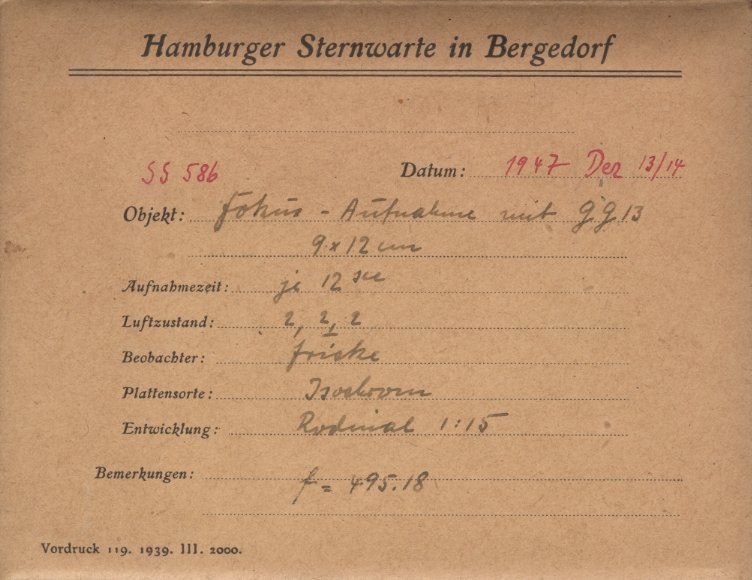 Hamburger Sternwarte in Bergedorf
SS 586 Datum: 1947 Dez 13/14
Objekt: Fokus - Aufnahme mit GG 13
9 x 12 cm
Aufnahmezeit: je 12 sec
Luftzustand: 2, 2, 2
Beobachter: Fricke
Plattensorte: Isochrom
Entwicklung: Rodinal 1:15
Bemerkungen: f = 495.18
Vordruck 119. 1939. III. 2000.